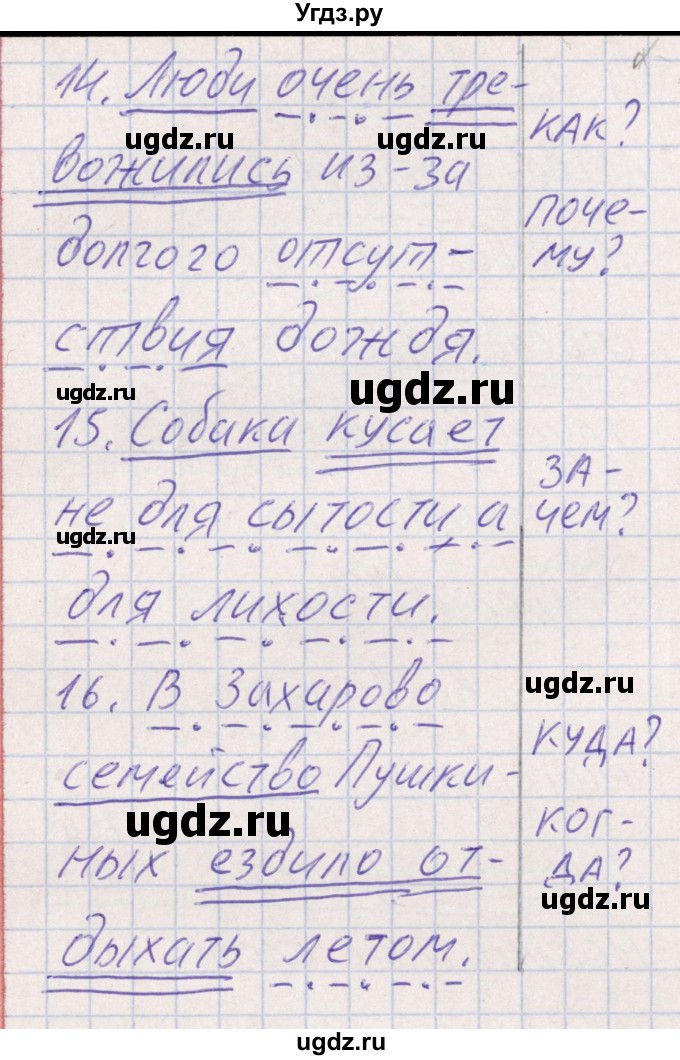 Угдз.ру
14. Люди очень тре-
КАК?
вожились из-за
ПОЧЕ-
долгого отсут-
МУ?
ствия дождя.
15. Собака кусает
ЗА-
не для сытости, а
ЧЕМ?
для лихости.
16. В Захарово
КУДА?
семейство Пушки-
КОГ-
ных ездило от-
ДА?
дыхать летом.
ugdz.ru
ugdz.ru
ugdz.ru
ugdz.ru
ugdz.ru
ugdz.ru
ugdz.ru
ugdz.ru
ugdz.ru
ugdz.ru
ugdz.ru
ugdz.ru
ugdz.ru